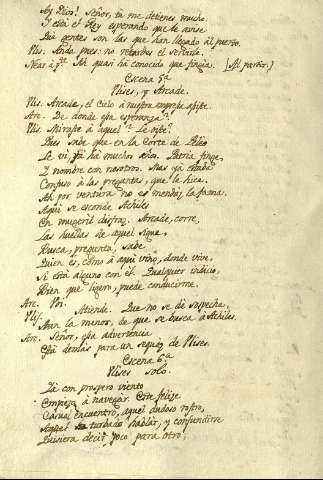 Ay Dios! Señor, tú me detienes mucho.
Y está el Rey esperando que le avise
Que gentes son las que han llegado al puerto.
Ulis. Anda pues: no retardes el servirle.
Near. Ah quasi há conocido que fingia. (Al partir.)
Escena 5ª
Ulises, y Arcade.
Ulis. Arcade, el Cielo á nuestra empresa asiste.
Arc. De donde esa esperanza?
Ulis. Miraste á aquel? Le oiste?
Pues sabe que en la Corte de Peleo
Le vi, ya há muchos años. Patria finge,
Y nombre con nosotros. Mas ya estaba
Confuso á las preguntas, que le hice.
Ah por ventura no es mendaz la fama.
Aqui se esconde Achiles
En mugeril disfraz. Arcade, corre,
Las huellas de aquel sigue,
Busca, pregunta, sabe
Quien es, cómo á aqui vino, donde vive,
Si está alguno con él. Qualquier indicio,
Bien que ligero, puede conducirme.
Arc. Voi.
Ulis. Atiende. Que no se dé sospecha,
Aun la menor, de que se busca á Achiles.
Arc. Señor, esa advertencia
Está demás para un sequáz de Ulises.
Escena 6ª
Ulises solo.
Yá con prospero viento
Empieza á navegar. Este felize
Casual encuentro, aquel dudoso rostro,
Aquel turbado hablar, y confundirse
Quisiera decir poco para otro;